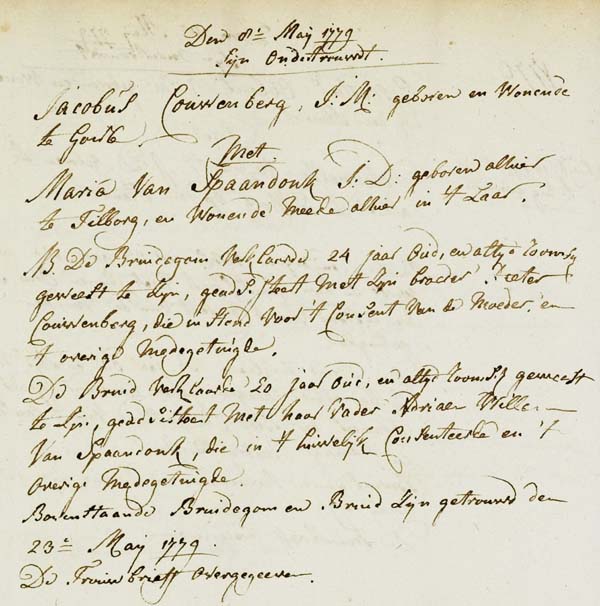 Den 8e. Maij 1779
Zijn Ondertrouwdt.
Jacobus Couwenberg, J:M: geboren en Wonende
te Goirle.
Met.
Maria Van Spaandonk J:D: geboren alhier
te Tilborg, en Wonende Mede alhier in 't Laar.
NB. De Bruidegom Verklaarde 24 jaar Oud, en altyd Rooms
geweest te Zijn, geadsisteert Met Zijn broeder Peter
Couwenberg, die instond Voor 't Consent Van de Moeder, en
't overige Medegetuigde.
De Bruid Verklaarde 20 jaar Oud, en altyd Roomsch geweest
te Zijn, geadsisteert Met haar Vader Adriaen Willem
Van Spaandonk, die in 't huwelijk Consenteerde en 't
Overige Medegetuigde.
Bovenstaande Bruidegom en Bruid Zijn getrouwd den
23e. Maij 1779.
De Trouwbrieff Overgegeeven.